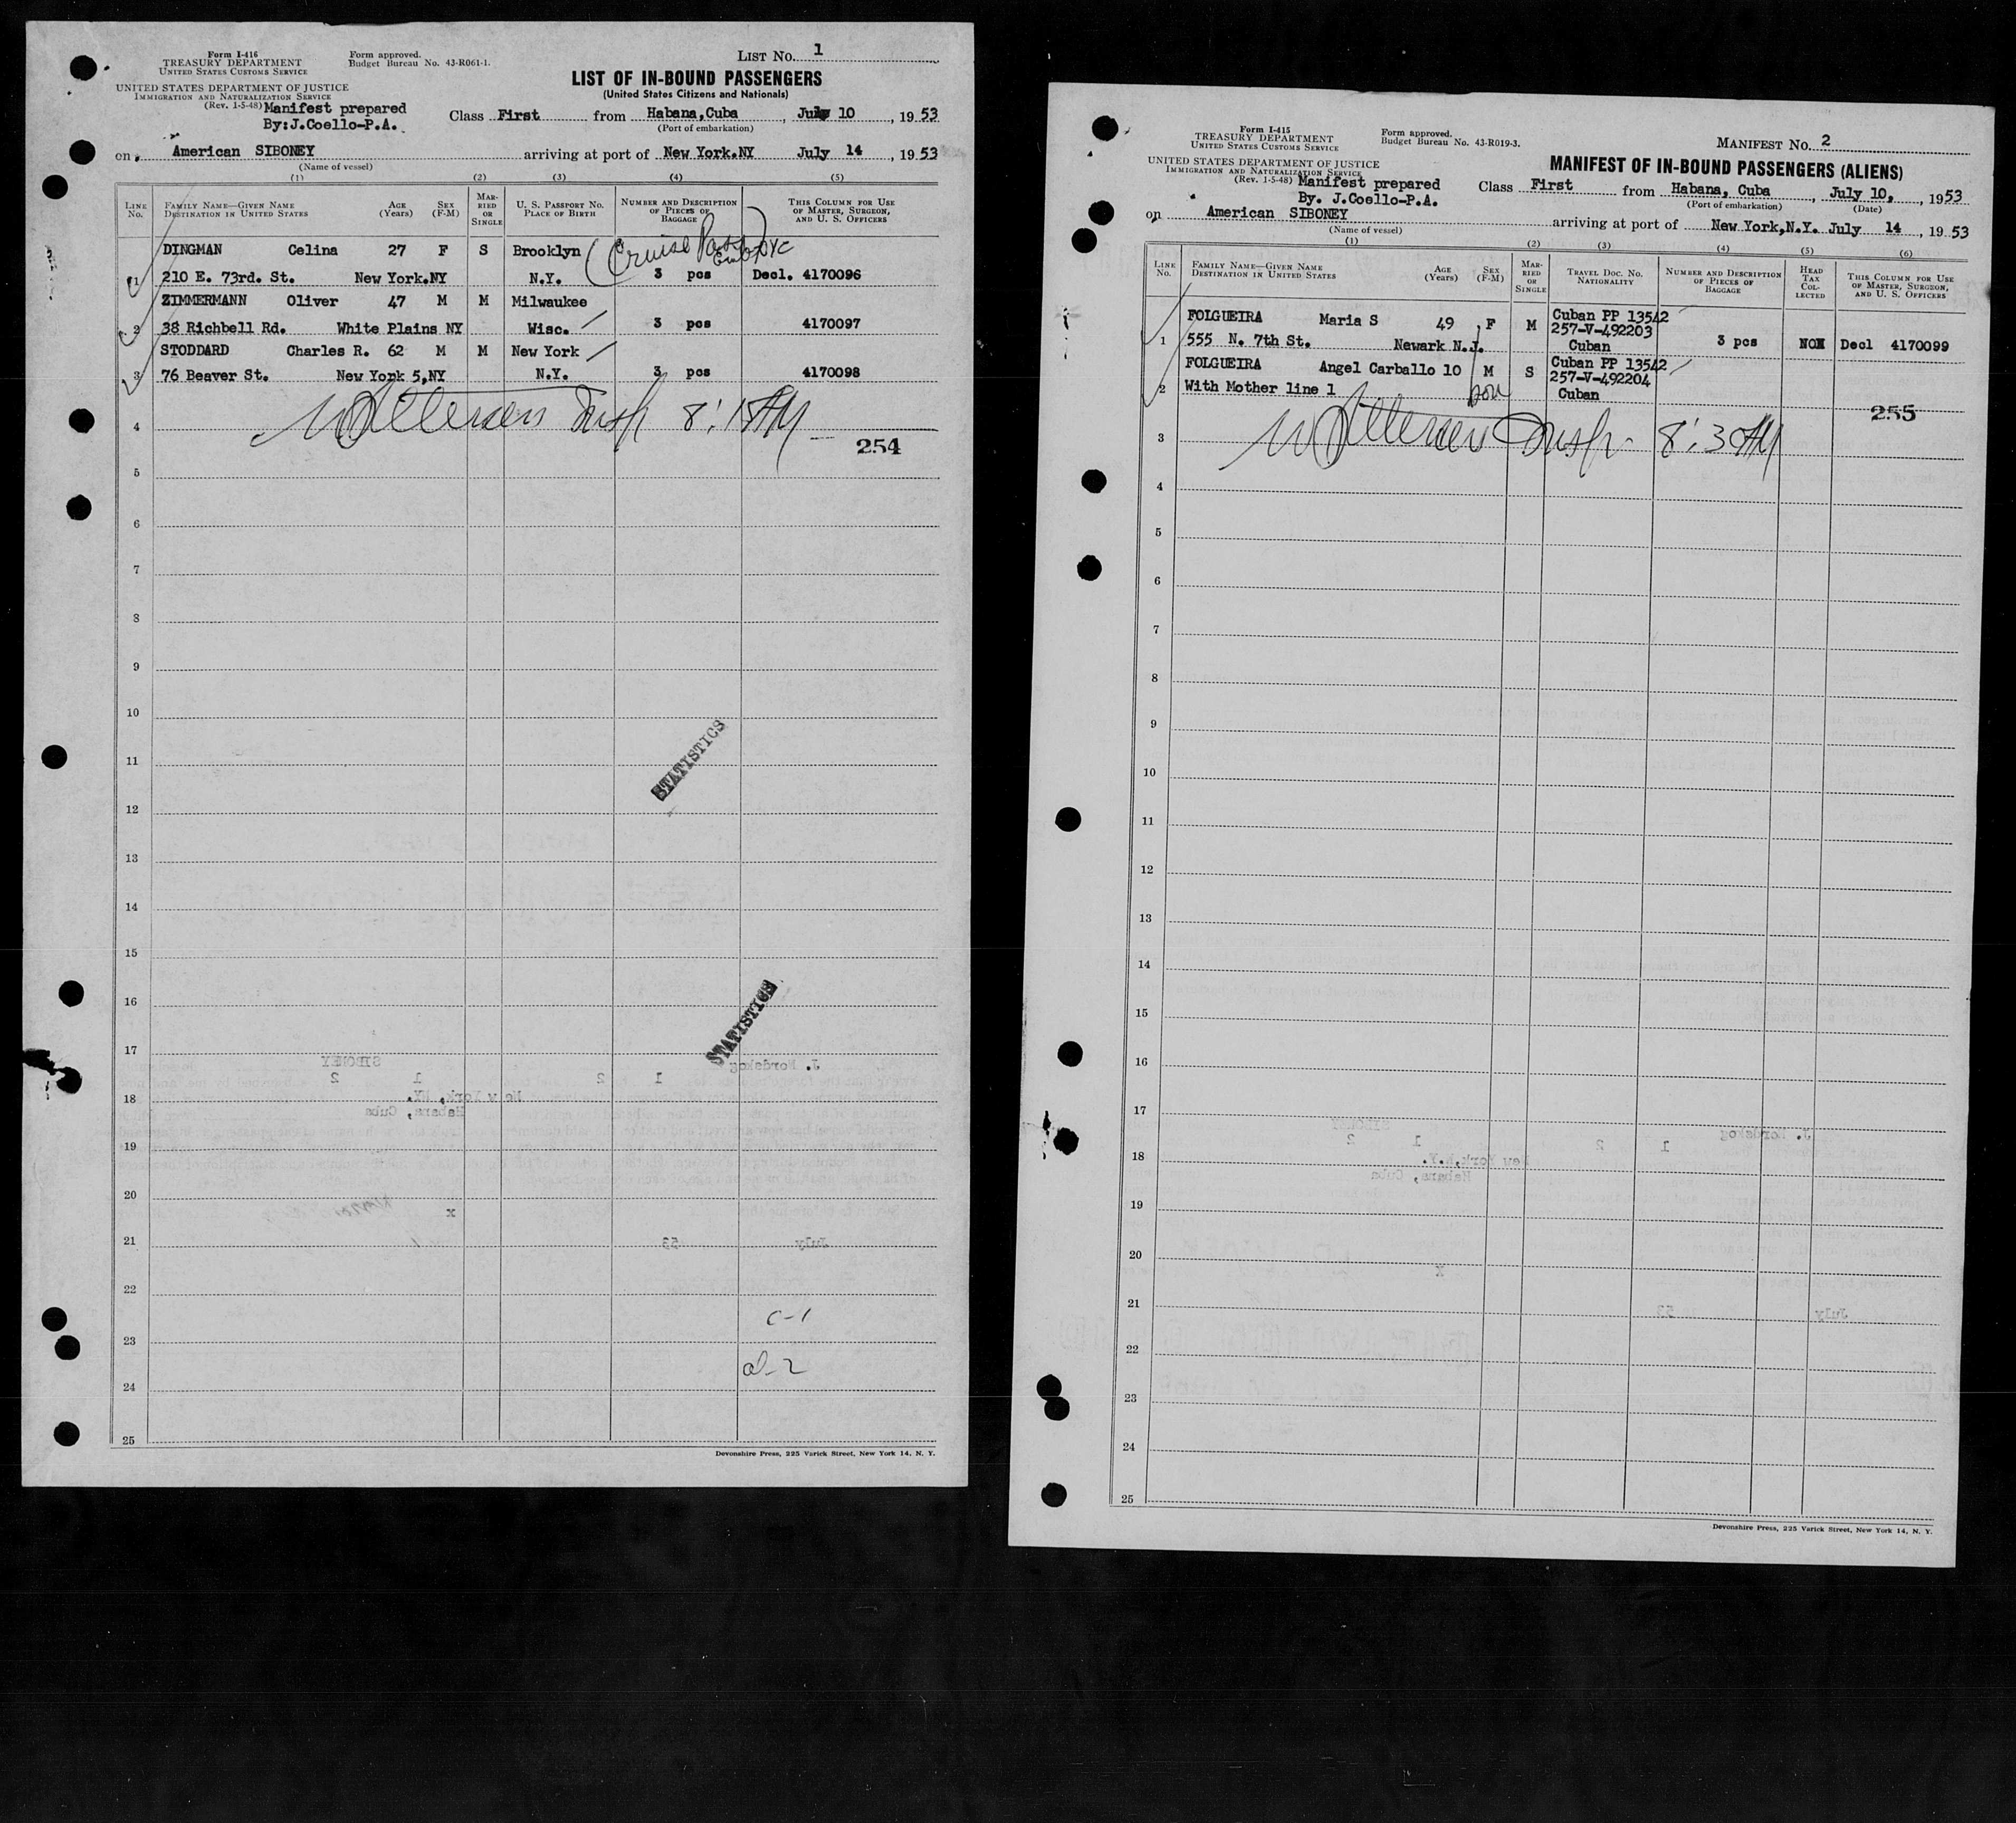 Form I-416
TREASURY DEPARTMENT
UNITED STATES CUSTOMS SERVICE
UNITED STATES DEPARTMENT OF JUSTICE
IMMIGRATION AND NATURALIZATION SERVICE
(Rev. 1-5-48) Manifest prepared
By: J.Coello-P.A.
Form approved.
Budget Bureau No. 43-R061-1.
LIST No. 1
LIST OF IN-BOUND PASSENGERS
(United States Citizens and Nationals)
Class First from Habana,Cuba, July 10, 1953
(Port of embarkation)
on American SIBONEY arriving at port of New York.NY July 14, 1953
(Name of vessel)
(1) (2) (3) (4) (5)
LINE No. FAMILY NAME—GIVEN NAME DESTINATION IN UNITED STATES AGE (Years) SEX (F-M) MARRIED OR SINGLE U. S. PASSPORT No. PLACE OF BIRTH NUMBER AND DESCRIPTION OF PIECES OF BAGGAGE THIS COLUMN FOR USE OF MASTER, SURGEON, AND U. S. OFFICERS
DINGMAN Celina 27 F S Brooklyn (Cruise NYC
1 210 E. 73rd. St. New York.NY N.Y. 3 pcs Decl. 4170096
ZIMMERMANN Oliver 47 M M Milwaukee
2 38 Richbell Rd. White Plains NY Wisc. 3 pcs 4170097
STODDARD Charles R. 62 M M New York
3 76 Beaver St. New York 5,NY N.Y. 3 pcs 4170098
4
254
5
6
7
8
9
10
STATISTICS
11
12
13
14
15
16
STATISTICS
17
J. Nordskog 1 2 1 2 SIBONEY
18
New York, NY.
Habana, Cuba
19
20
x
21
July 53
22
C-1
23
al-2
24
25
Devonshire Press, 225 Varick Street, New York 14, N. Y.
Form I-415
TREASURY DEPARTMENT
UNITED STATES CUSTOMS SERVICE
UNITED STATES DEPARTMENT OF JUSTICE
IMMIGRATION AND NATURALIZATION SERVICE
(Rev. 1-5-48) Manifest prepared
By. J.Coello-P.A.
Form approved.
Budget Bureau No. 43-R019-3.
MANIFEST No. 2
MANIFEST OF IN-BOUND PASSENGERS (ALIENS)
Class First from Habana, Cuba, July 10, 1953
(Port of embarkation) (Date)
on American SIBONEY arriving at port of New York,N.Y. July 14, 1953
(Name of vessel)
(1) (2) (3) (4) (5) (6)
LINE No. FAMILY NAME—GIVEN NAME DESTINATION IN UNITED STATES AGE (Years) SEX (F-M) MARRIED OR SINGLE TRAVEL DOC. No. NATIONALITY NUMBER AND DESCRIPTION OF PIECES OF BAGGAGE HEAD TAX COLLECTED THIS COLUMN FOR USE OF MASTER, SURGEON, AND U. S. OFFICERS
FOLGUEIRA Maria S 49 F M Cuban PP 13542
257-V-492203
1 555 N. 7th St. Newark N.J. Cuban 3 pcs Decl 4170099
FOLGUEIRA Angel Carballo 10 M S Cuban PP 13542
257-V-492204
2 With Mother line 1 son Cuban
255
3
8:30AM
4
5
6
7
8
9
10
11
12
13
14
15
16
17
J. Nordskog 1 2 1 2 SIBONEY
18
New York,N.Y.
Habana, Cuba
19
20
x
21
July 53
22
23
24
25
Devonshire Press, 225 Varick Street, New York 14, N. Y.